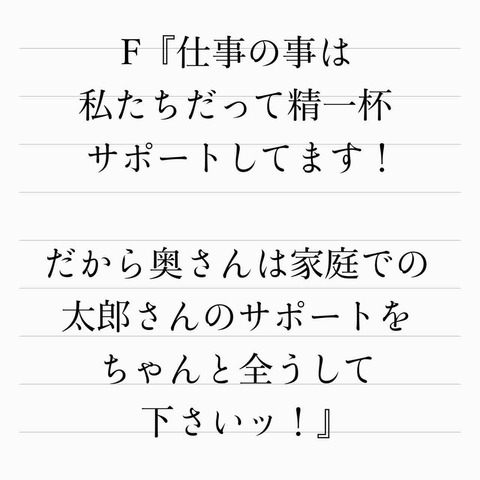 F『仕事の事は
私たちだって精一杯
サポートしてます！
だから奥さんは家庭での
太郎さんのサポートを
ちゃんと全うして
下さいッ！』